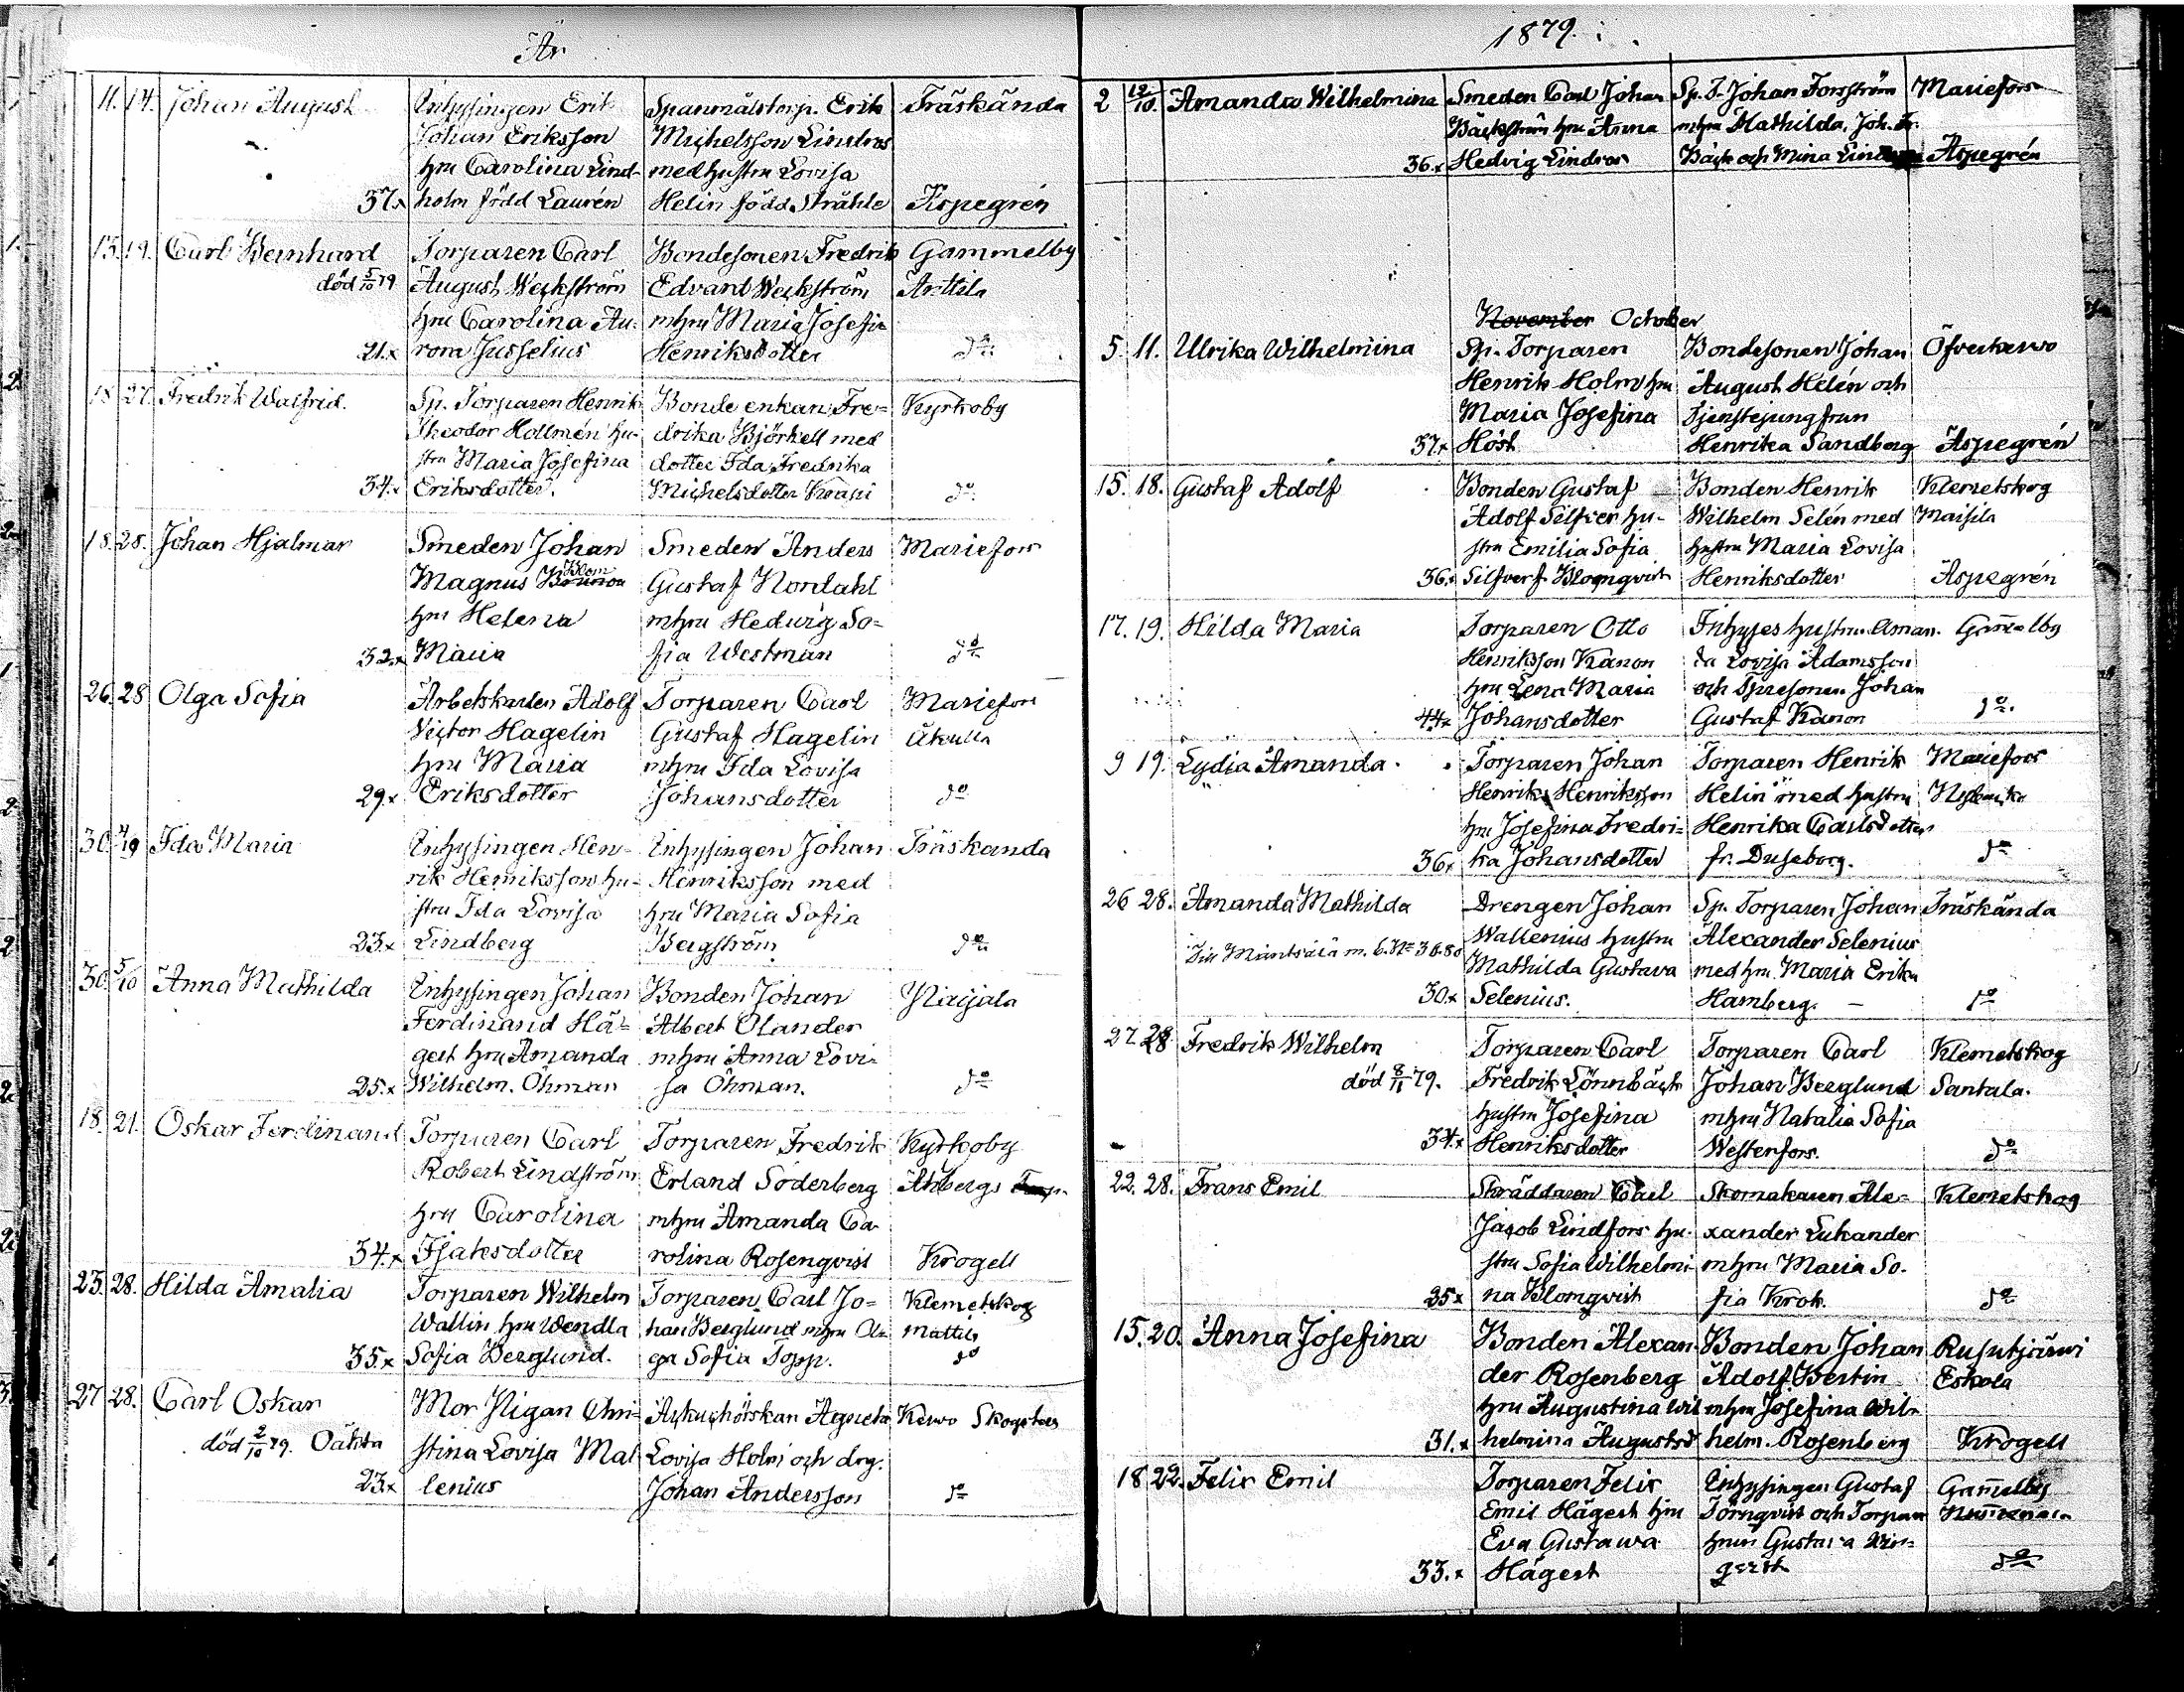 År
11. 14. Johan August Inhysingen Erik Spanmålstorp. Erik Träskända
Johan Eriksson Michelsson Lindros
hru Carolina Lind- med hustru Lovisa
37.x holm född Laurén Helin född Stråhle Aspegrén
13. 19. Carl Bernhard Torparen Carl Bondesonen Fredrik Gammelby
död 5/10 79 August Weckström Edvard Weckström Anttila
hru Carolina Au- mhru Maria Josefin
21.x rora Jusselius Henriksdotter do
18 27. Fredrik Walfrid. Sp. Torparen Henrik Bonde enkan Fre- Kyrkoby
Theodor Hollmén hu- drika Björkell med
stru Maria Josefina dotter Ida Fredrika
34.x Eriksdotter. Michelsdotter Krapi do
18. 28. Johan Hjalmar Smeden Johan Smeden Anders Mariefors
Magnus Blom Gustaf Nordahl
hru Helena mhru Hedwig So-
32.x Maria fia Westman do
26. 28 Olga Sofia Arbetskarlen Adolf Torparen Carl Mariefors
Victor Hagelin Gustaf Hagelin Åkulla
hru Maria mhru Ida Lovisa
29.x Eriksdotter Johansdotter do
30. Ida Maria Inhysingen Hen- Inhysingen Johan Träskanda
rik Henriksson hu- Henriksson med
stru Ida Lovisa hru Maria Sofia
23.x Lindberg Bergström do
30. 5/10 Anna Mathilda Inhysingen Johan Bonden Johan
Ferdinand Hä- Albert Olander
gert hru Amanda mhru Anna Lovi-
25.x Wilhelm. Öhman sa Öhman. do
18. 21. Oskar Ferdinand Torparen Carl Torparen Fredrik Kyrkoby
Robert Lindström Erland Söderberg Åhbergs
hru Carolina mhru Amanda Ca-
34.x Isaksdotter rolina Rosenqvist Krogell
23. 28. Hilda Amalia Torparen Wilhelm Torparen Carl Jo- Klemetskog
Wallin hru Wendla han Berglund mhru Ol- Mattila
35.x Sofia Berglund. ga Sofia do
27 28. Carl Oskar Mor Pigan Chri- Agneta Kerwo Skogster
död 2/10 79. Oäkta stina Lovisa Mal- Lovisa Holm och drg.
23.x lenius Johan Andersson do
1879.
2 12/10. Amanda Wilhelmina Smeden Carl Johan Sp. T. Johan Forsström Mariefors
Bäckström hru Anna mhru Mathilda, Joh. Fr.
36.x Hedvig Lindros Bäck och Mina Aspegrén
November October
5. 11. Ulrika Wilhelmina Sp. Torparen Bondesonen Johan Öfverkerwo
Henrik Holm hru August Helén och
Maria Josefina Tjenstejungfrun
37.x Höst Henrika Sandberg Aspegrén
15. 18. Gustaf Adolf Bonden Gustaf Bonden Henrik Klemetskog
Adolf Silfver hu- Wilhelm Selén med Maisila
stru Emilia Sofia hustru Maria Lovisa
36.x Silfver f. Blomqvist Henriksdotter Aspegrén
17. 19. Hilda Maria Torparen Otto Inhyses hustrun Aman- Gam̅elby
Henriksson Kanon da Lovisa Adamsson
hru Lena Maria och Johan
44.x Johansdotter Gustaf Kanon do.
9 19. Lydia Amanda Torparen Johan Torparen Henrik Mariefors
Henrik Henriksson Helin med hustru
hru Josefina Fredri- Henrika Carlsdotter
36.x ka Johansdotter fr. Duseborg. do
26 28. Amanda Mathilda Drengen Johan Sp. Torparen Johan Träskända
Wallenius hustru Alexander Selenius
Mathilda Gustava med hru Maria Erika
30.x Selenius. Hamberg. do
27. 28. Fredrik Wilhelm Torparen Carl Torparen Carl Klemetskog
död 8/11 79. Fredrik Lönnbäck Johan Berglund Santala.
hustru Josefina mhru Natalia Sofia
34.x Henriksdotter Westerfors. do
22. 28. Frans Emil Skräddaren Carl Skomakaren Ale- Klemetskog
Jacob Lindfors hu- xander Lukander
stru Sofia Wilhelmi- mhru Maria So-
35x na Blomqvist fia Krok. do
15. 20. Anna Josefina Bonden Alexan- Bonden Johan Rusutjärwi
der Rosenberg Adolf Bertin Eskola
hru Augustina Wil- mhru Josefina Wil-
31.x helmina Augustsd helm. Rosenberg Krogell
18 22. Felix Emil Torparen Felix Inhysingen Gustaf Gam̅elby
Emil Hägert hru Törnqvist och Torpare
Eva Gustawa hrun Gustava
33.x Hägert do